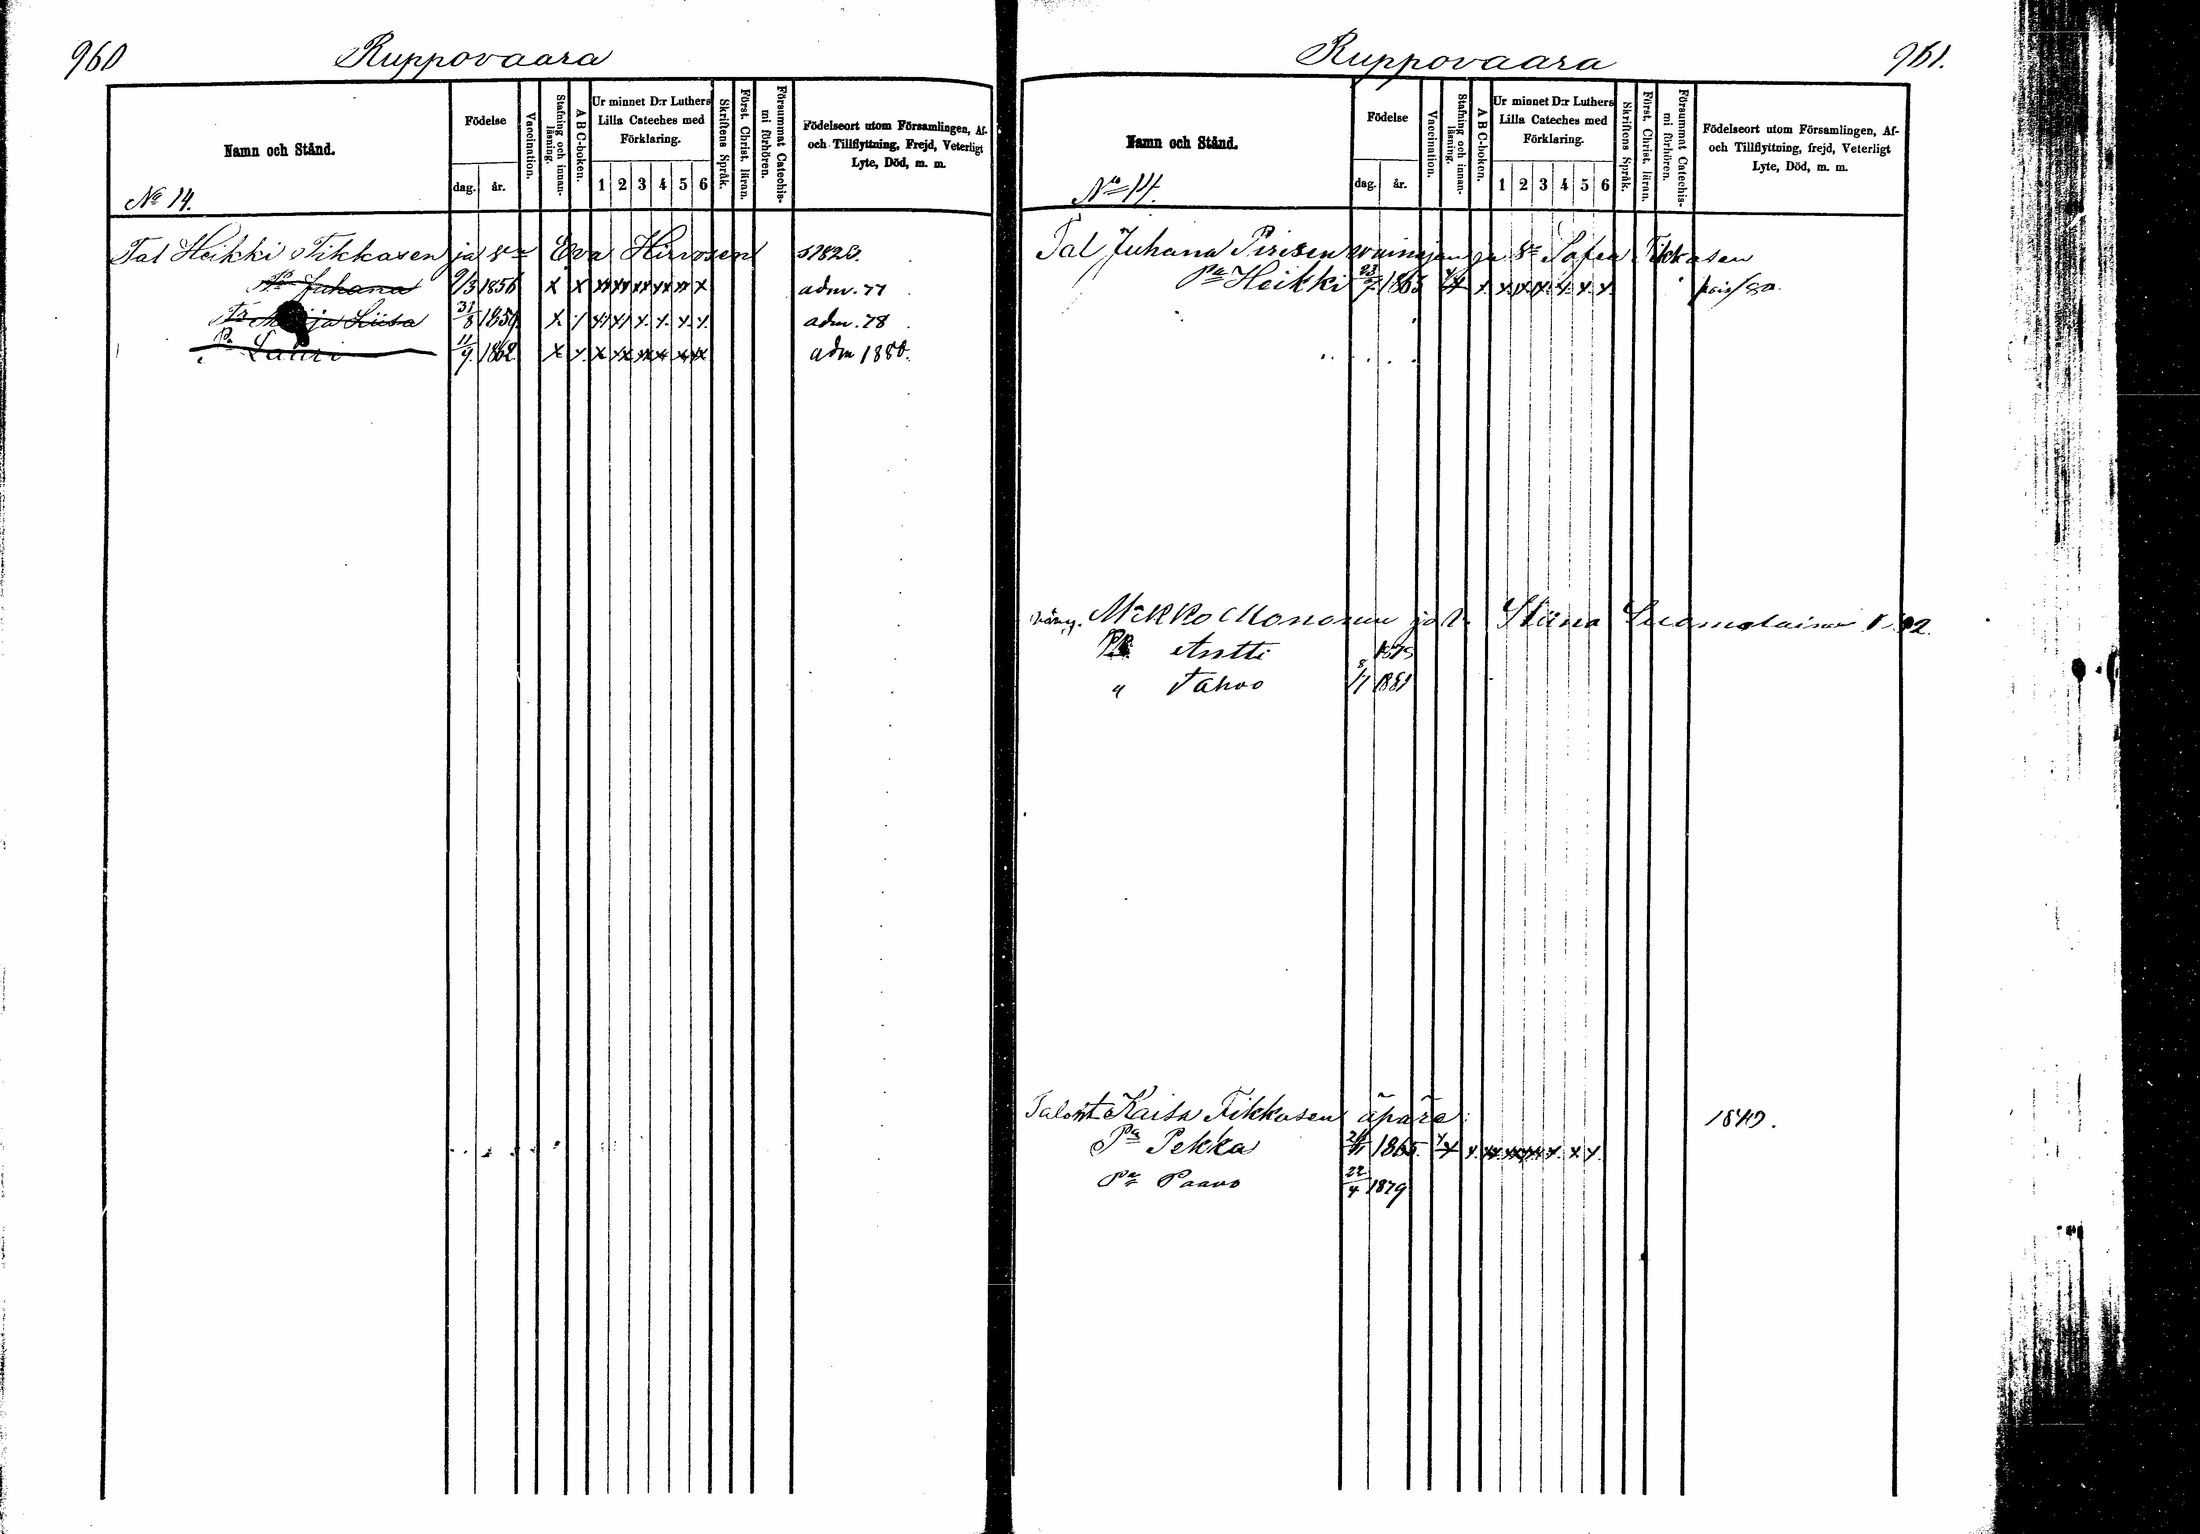 960
Ruppovaara
Namn och Stånd.
No 14.
Födelse
dag. år.
Vaccination.
Stafning och innanläsning.
A B C-boken.
Ur minnet D:r Luthers Lilla Cateches med Förklaring.
1 2 3 4 5 6
Skriftens Språk.
Först. Christ. läran.
Försummat Catechismi förhören.
Födelseort utom Församlingen, Af- och Tillflyttning, Frejd, Veterligt Lyte, Död, m. m.
Tal Heikki Tikkasen ja Eva Hirvosen
Pa Juhana 9/3 1856 adm. 77
Tr Liisa 31/8 1859 adm. 78
Pa Lauri 11/9 1862 adm 1880.
Ruppovaara
961.
Namn och Stånd.
No 14.
Födelse
dag. år.
Vaccination.
Stafning och innanläsning.
A B C-boken.
Ur minnet D:r Luthers Lilla Cateches med Förklaring.
1 2 3 4 5 6
Skriftens Språk.
Först. Christ. läran.
Försummat Catechismi förhören.
Födelseort utom Församlingen, Af- och Tillflyttning, frejd, Veterligt Lyte, Död, m. m.
Tal Juhana Pirisen ja Sofia Tikkasen
Pa Heikki 1865
Mikko Monosen ja Stiina Suomalaisen
Antti 1875
" Tahvo 8/1 1881
Kaisa Tikkasen äpärä: 1840.
Pa Pekka 1865
Pa Paavo 22/4 1879